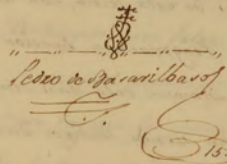 Pedro de Basarilbasol
15